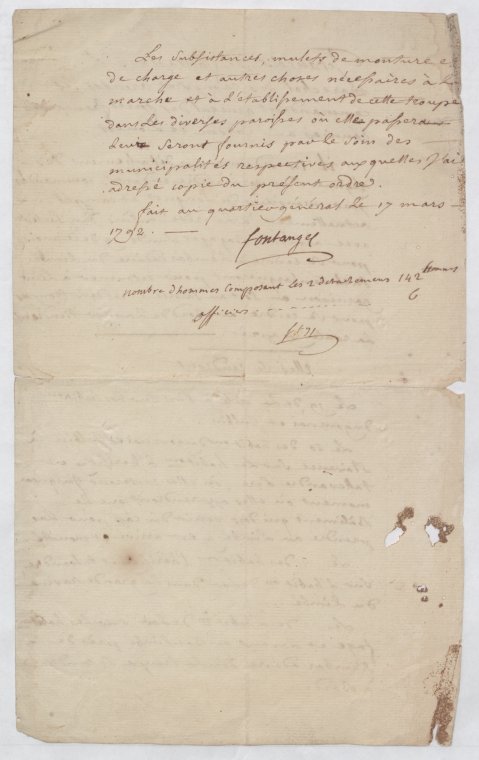 Les Subsistances, mulets de monture e
de charge et autres choses nécessaires à la
marche et à L'etablissement de cette troupe
dans Les diverses paroisses où elle passera
Leur seront fournis par le soin des
municipalités respectives aux quelles J'ai
adressé copie du présent ordre.
fait au quartier général Le 17 mars
1792. —
fontanges
nombre d'hommes Composant Les 2 detachemens 142 hommes
officiers - - - - - - 6